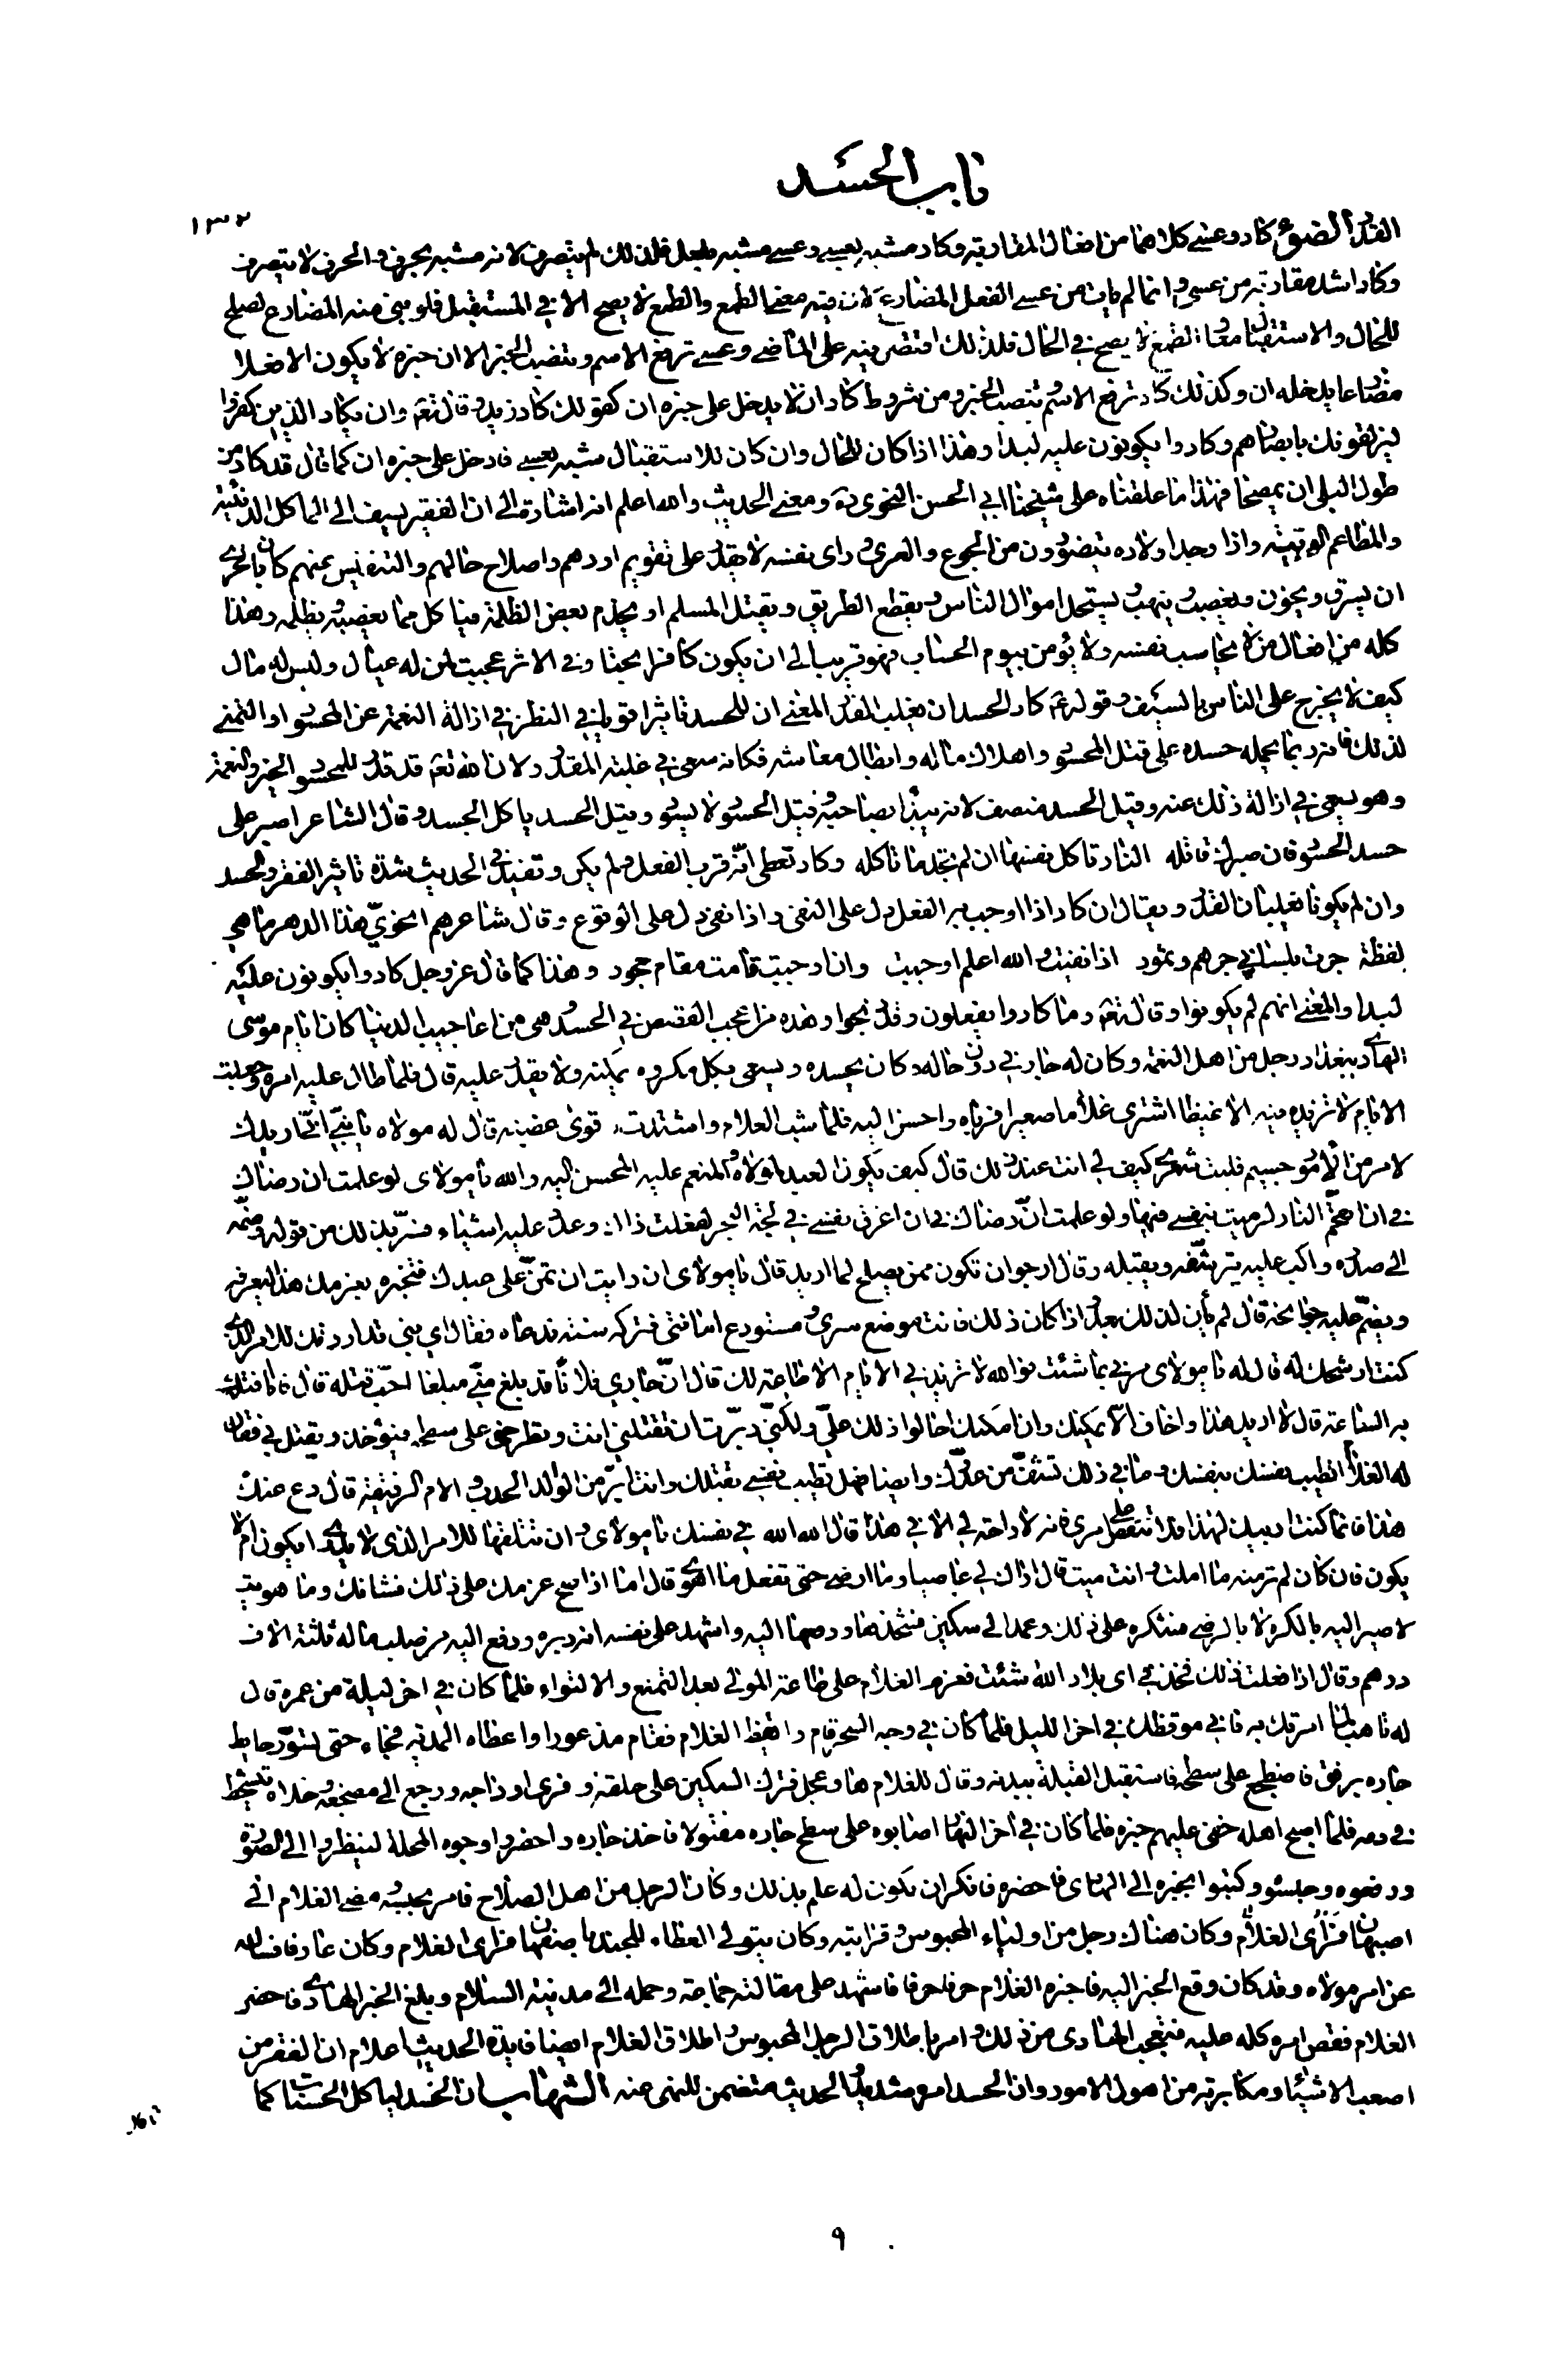 باب الحسد
١٣٢
القدر الضوء كاد وعسى كلاهما من افعال المقاربة وكاد مشبه بعسى وعسى مشبه بلعل فلذلك لم يتصرف لانه مشبه بحرف والحرف لا يتصرف
وكاد اشد مقاربة من عسى وانما لم يات من عسى الفعل المضارع لان فيه معنى الطمع والطمع لا يصح الا في المستقبل فلو بنى منه المضارع لصلح
للحال والاستقبال معا والطمع لا يصح في الحال فلذلك اقتصر فيه على الماضي وعسى ترفع الاسم وتنصب الخبر الا ان خبره لا يكون الا فعلا
مضارعا يدخله ان وكذلك كاد ترفع الاسم وتنصب الخبر ومن شروط كاد ان لا يدخل على خبره ان كقولك كاد زيد وقال تعه وان يكاد الذين كفروا
ليزلقونك بابصارهم وكادوا يكونون عليه لبدا وهذا اذا كان للحال وان كان للاستقبال شبه بعسى فادخل على خبره ان كما قال قد كاد من
طول البلى ان يمصحا فهذا ما علقناه على شيخنا ابي الحسن النحوي ره ومعنى الحديث والله اعلم انه اشارة الى ان الفقير يسف الى الماكل الدنية
والمطاعم الوتيئة واذا وجد اولاده يتضورون من الجوع والعرى وراى نفسه لا يقدر على تقويم اودهم واصلاح حالهم والتنفيس عنهم كان بالحرى
ان يسرق ويخون ويغصب وينهب ويستحل اموال الناس ويقطع الطريق ويقتل المسلم او يخدم بعض الظلمة فياكل مما يغصبه ويظلمه وهذا
كله من افعال من لا يحاسب نفسه ولا يؤمن بيوم الحساب فهو قريب الى ان يكون كافرا بحتا وفي الاثر عجبت لمن له عيال وليس له مال
كيف لا يخرج على الناس بالسيف وقوله عم كاد الحسد ان يغلب القدر المعنى ان للحسد تاثيرا قويا في النظر في ازالة النعمة عن المحسود او التمني
لذلك فانه ربما يحمله حسده على قتل المحسود واهلاك ماله وابطال معاشه فكانه سعى في غلبة المقدور ولان الله تعه قد قدر للمحسود الخير والنعمة
وهو يسعى في ازالة ذلك عنه وقيل الحسد منصف لانه يبدأ بصاحبه وقيل الحسود لا يسود وقيل الحسد ياكل الجسد وقال الشاعر اصبر على
حسد الحسود فان صبرك قاتله النار تاكل نفسها ان لم تجد ما تاكله وكاد تعطى انه قرب الفعل ولم يكن وتفيد في الحديث شدة تاثير الفقر والحسد
وان لم يكونا يغلبان القدر ويقال ان كاد اذا اوجب به الفعل دل على النفي واذا نفي دل على الوقوع وقال شاعرهم انحوي هذا الدهر ما هي
لفظة جرت بلساني جرهم وثمود اذا نفيت والله اعلم اوجبت وان اوجبت قامت مقام جحود وهذا كما قال عز وجل كادوا يكونون عليه
لبدا والمعنى انهم لم يكونوا وقال تعه وما كادوا يفعلون وقد ذبحوا وهذه من اعجب القصص في الحسد وهى من اعاجيب الدنيا كان ايام موسى
الهادى ببغداد رجل من اهل النعمة وكان له جار في دون حاله وكان يحسده ويسعى بكل مكروه يمكنه ولا يقدر عليه قال فلما طال عليه امره وجعلت
الايام لا تزيده فيه الا غيظا اشترى غلاما صغيرا فرباه واحسن اليه فلما شب الغلام واشتدت قوى عضبه قال له مولاه يا بني انى اريدك
لامر من الامور جسيم فليت شعرى كيف لي انت عند ذلك قال كيف يكون العبد لمولاه والمنعم عليه المحسن اليه والله يا مولاى لو علمت ان رضاك
في ان اتقحم النار لرميت بنفسي فيها ولو علمت ان رضاك في ان اغرق نفسي في لجة البحر لفعلت ذلك وعدد عليه اشياء فسر بذلك من قوله وضمه
الى صدره واكب عليه يترشفه ويقبله وقال ارجو ان تكون ممن يصلح لما اريد قال يا مولاى ان رايت ان تمن على عبدك فتخبره بعزمك هذا ليعرفه
ويضم عليه جوانحه قال لم يأن لذلك بعد واذا كان ذلك فانت موضع سرى ومستودع امانتى فتركه سنة فدعاه فقال اي بني قد اردتك للامر الذى
كنت ارشحك له قال له يا مولاى مرني بما شئت فوالله لا تزيدني الايام الا طاعة لك قال ان جاري فلانا قد بلغ مني مبلغا احب قتله قال فانا افتك
به الساعة قال لا اريد هذا واخاف الا يمكنك وان امكنك احالوا ذلك علي ولكني دبرت ان تقتلني انت وتطرحني على سطحه فيؤخذ ويقتل بي فقال
له الغلام اتطيب نفسك بنفسك وما في ذلك تشف من عدوك وايضا فهل تطيب نفسي بقتلك وانت ابر من الوالد الحدب والام الرفيقة قال دع عنك
هذا فانما كنت اربيك لهذا فلا تنقض على امري فانه لا راحة لي الا في هذا قال الله الله في نفسك يا مولاى وان تتلفها للامر الذى لا يدرى ايكون ام لا
يكون فان كان لم تر منه ما املت وانت ميت قال اراك لي عاصيا وما ارضى حتى تفعل ما اهوى قال اما اذا صح عزمك على ذلك فشانك وما هويت
لاصير اليه بالكره لا بالرضى فشكره على ذلك وعمد الى سكين فشحذها ودفعها اليه واشهد على نفسه انه دبره ودفع اليه من صلب ماله ثلثة الاف
درهم وقال اذا فعلت ذلك فخذ في اى بلاد الله شئت فعزم الغلام على طاعة المولى بعد التمنع والالتواء فلما كان في اخر ليلة من عمره قال
له تاهب لما امرتك به فاني موقظك في اخر الليل فلما كان في وجه السحر قام وايقظ الغلام فقام مذعورا واعطاه المدية فجاء حتى تسور حايط
جاره برفق فاضطجع على سطحه فاستقبل القبلة ببدنه وقال للغلام ها وعجل فترك السكين على حلقه وفرى اوداجه ورجع الى مضجعه وخلاه يتشحط
في دمه فلما اصبح اهله خفى عليهم خبره فلما كان في اخر النهار اصابوه على سطح جاره مقتولا فاخذ جاره واحضروا وجوه المحلة لينظروا الى الصورة
ورفعوه وحبسوه وكتبوا بخبره الى الهادى فاحضره فانكر ان يكون له علم بذلك وكان الرجل من اهل الصلاح فامر بحبسه ومضى الغلام الى
اصبهان فراى الغلام وكان هناك رجل من اولياء المحبوس وقرابته وكان يتولى العطاء للجند باصفهان فراى الغلام وكان عارفا فساله
عن امر مولاه وقد كان وقع الخبر اليه فاخبره الغلام حرفا حرفا فاشهد على مقالته جماعة وحمله الى مدينة السلام وبلغ الخبر الهادى فاحضر
الغلام فقص امره كله عليه فتعجب الهادى من ذلك وامر باطلاق الرجل المحبوس واطلاق الغلام ايضا فايدة الحديث اعلام ان الفقر من
اصعب الاشياء ومكابرته من اهول الامور وان الحسد امره شديد والحديث متضمن للنهى عنه الشهاب ان الحسد لياكل الحسنات كما
تاكل
٩